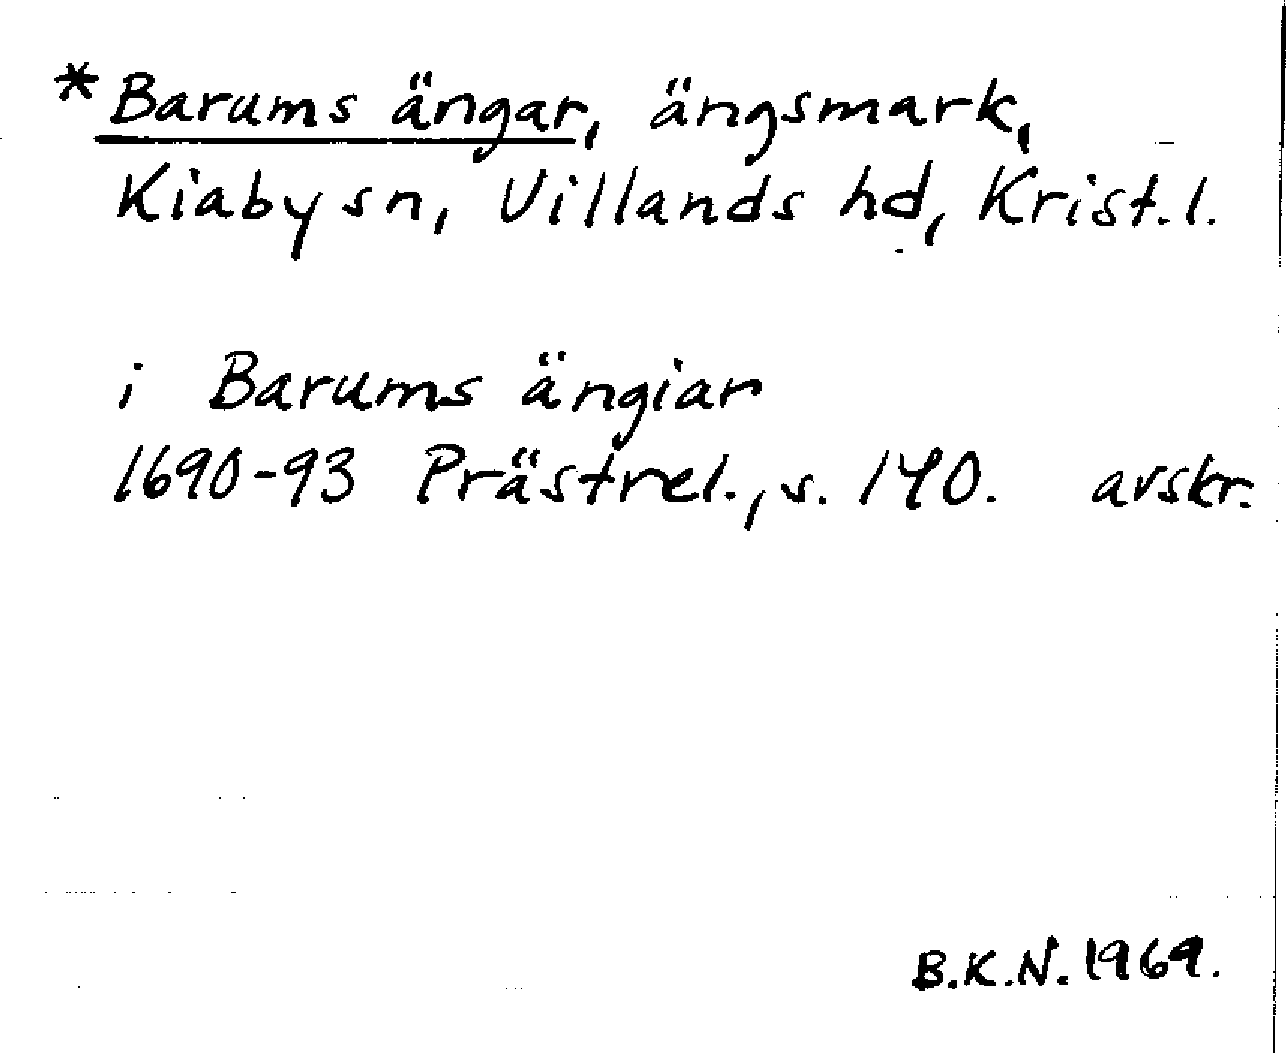 *Barums ängar, ängsmark,
Kiaby sn, Villands hd, Krist. l.
i Barums ängiar
1690-93 Prästrel., s. 140. avskr.
B.K.N. 1969.